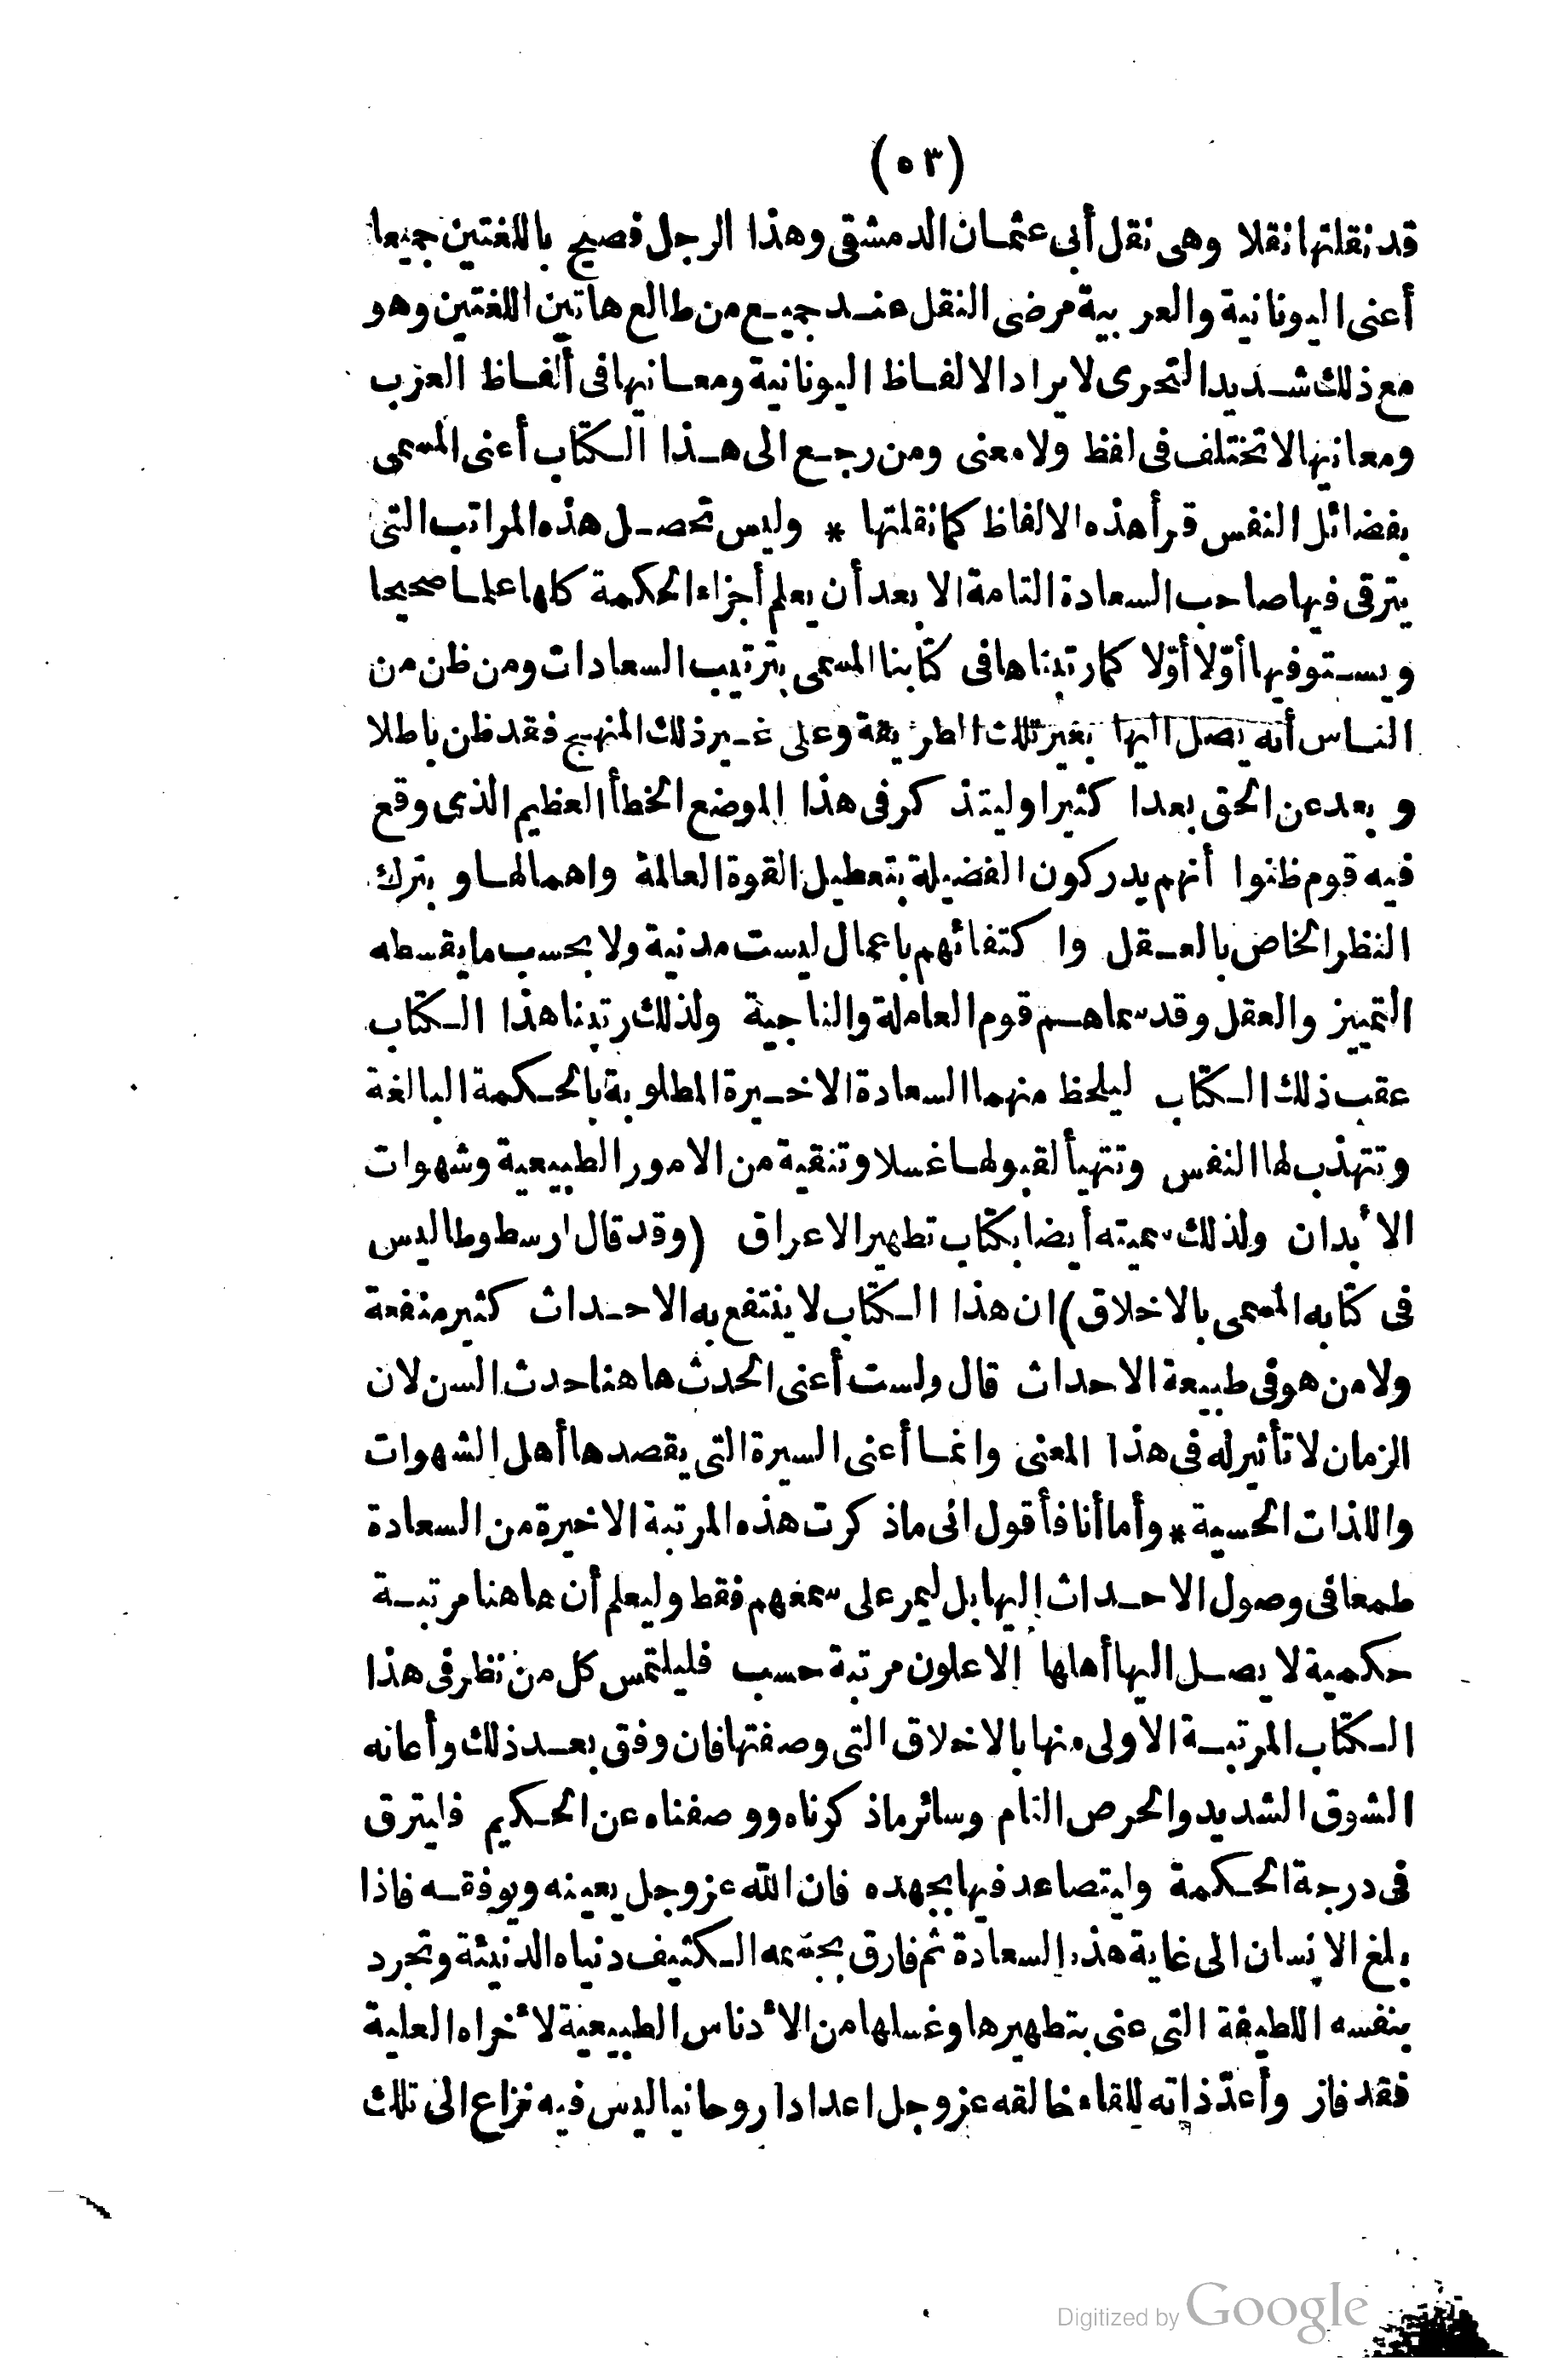 (٥٣)
قد نقلتها نقلا وهى نقل أبى عثمان الدمشقى وهذا الرجل فصيح باللغتين جميعا
أعنى اليونانية والعربية مرضى النقل عند جميع من طالع هاتين اللغتين وهو
مع ذلك شديد التحرى لايراد الالفاظ اليونانية ومعانيها فى ألفاظ العرب
ومعانيها لا تختلف فى لفظ ولا معنى ومن رجع الى هذا الكتاب أعنى المسمى
بفضائل النفس قرأ هذه الالفاظ كما نقلتها * وليس تحصل هذه المراتب التى
يترقى فيها صاحب السعادة التامة الا بعد أن يعلم أجزاء الحكمة كلها علما صحيحا
ويستوفيها أوّلا أوّلا كما رتبناها فى كتابنا المسمى بترتيب السعادات ومن ظن من
الناس أنه يصل اليها بغير تلك الطريقة وعلى غير ذلك المنهج فقد ظن باطلا
وبعد عن الحق بعدا كثيرا وليتذكر فى هذا الموضع الخطأ العظيم الذى وقع
فيه قوم ظنوا أنهم يدركون الفضيلة بتعطيل القوة العالمة واهمالها وبترك
النظر الخاص بالعقل واكتفائهم باعمال ليست مدنية ولا بحسب ما يقسطه
التمييز والعقل وقد سماهم قوم العاملة والناجية ولذلك رتبنا هذا الكتاب
عقب ذلك الكتاب ليلحظ منهما السعادة الاخيرة المطلوبة بالحكمة البالغة
وتتهذب لها النفس وتتهيأ لقبولها غسلا وتنقية من الامور الطبيعية وشهوات
الأبدان ولذلك سميته أيضا بكتاب تطهير الاعراق (وقد قال ارسطوطاليس
فى كتابه المسمى بالاخلاق) ان هذا الكتاب لا ينتفع به الاحداث كثير منفعة
ولا من هو فى طبيعة الاحداث قال ولست أعنى الحدث هاهنا حدث السن لان
الزمان لا تأثير له فى هذا المعنى وانما أعنى السيرة التى يقصدها أهل الشهوات
واللذات الحسية * وأما أنا فأقول انى ماذكرت هذه المرتبة الاخيرة من السعادة
طمعا فى وصول الاحداث إليها بل ليمر على سمعهم فقط وليعلم أن هاهنا مرتبة
حكمية لا يصل اليها أهلها إلا علون مرتبة حسب فليلتمس كل من نظر فى هذا
الكتاب المرتبة الاولى منها بالاخلاق التى وصفتها فان وفق بعد ذلك وأعانه
الشوق الشديد والحرص التام وسائر ماذكرناه ووصفناه عن الحكيم فليترق
فى درجة الحكمة وليتصاعد فيها بجهده فان الله عز وجل يعينه ويوفقه فاذا
بلغ الانسان الى غاية هذه السعادة ثم فارق بجثمه الكثيف دنياه الدنيئة وتجرد
بنفسه اللطيفة التى عنى بتطهيرها وغسلها من الأدناس الطبيعية لأخراه العلية
فقد فاز وأعدّ ذاته للقاء خالقه عز وجل اعدادا روحانيا ليس فيه نزاع الى تلك
Digitized by Google